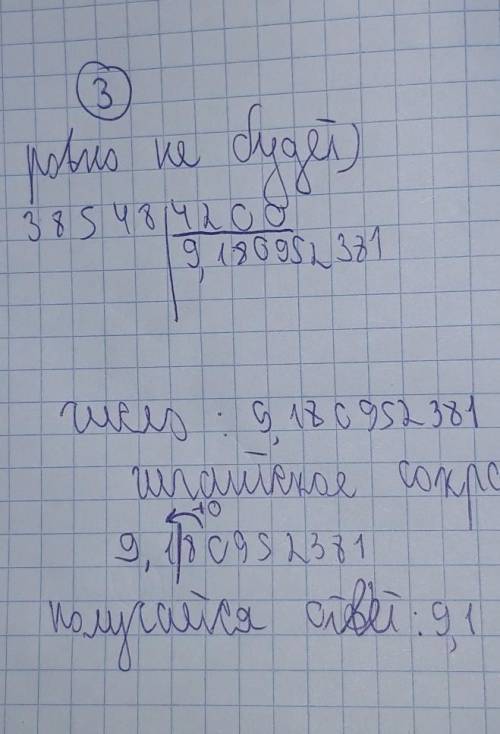 3
ровно не будет)
38548 4200
9,180952381
число: 9,180952381
сокра
+0
9,180952381
получается ответ: 9,1